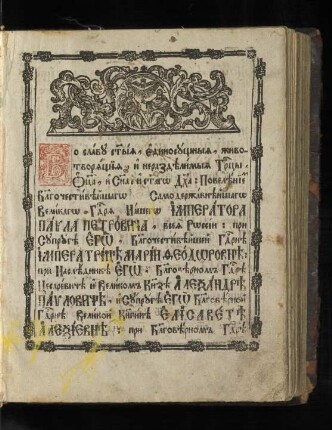 Во славу ст҃ыѧ, Единосущныѧ, живо-
творѧщїѧ, и нераздѣлимыѧ Трⷪ҇цы,
Ѻц҃а, и Сн҃а, и ст҃агѡ Дх҃а: Повелѣнїе
Благочестивѣйшагѡ Самодержавнѣйшагѡ
Великагѡ Гдⷭ҇рѧ Нашегѡ ІМПЕРАТОРА
ПАѴЛА ПЕТРОВИЧА, всеѧ Рѡссїи: при
Сꙋпрꙋгѣ ЕГѠ, Благочестивѣйшей Гдⷭ҇рнѣ
ІМПЕРАТРИЦѢ МАРІИ ѲЕОДѠРОВНѢ:
при Наслѣдникѣ ЕГѠ, Благовѣрномъ Гдⷭ҇рѣ
Цесаревичѣ и Великомъ Кнѧзѣ АЛЕѮАНДРѢ
ПАѴЛОВИЧѢ, и Сꙋпрꙋгѣ ЕГѠ Благовѣрной
Гдⷭ҇рнѣ Великой Кнѧгинѣ ЕЛІСАВЕТѢ
АЛЕѮІЕВНѢ: при Благовѣрномъ Гдⷭ҇рѣ